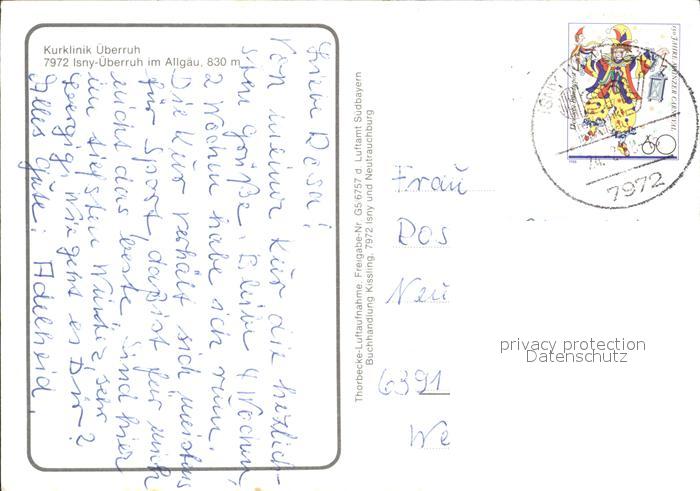 Kurklinik Überruh
7972 Isny-Überruh im Allgäu, 830 m
Liebe Rosa!
Von meiner Kur die herzlich-
sten Grüße. Bleibe 4 Wochen,
2 Wochen habe ich rum.
Die Kur verhält sich meistens
für Sport, das ist für mich
nicht das beste. Sind hier
im tiefsten Winter, sehr
Wie geht es Dir?
Alles Gute! Adelheid.
Thorbecke-Luftaufnahme. Freigabe-Nr. G5/6757 d. Luftamt Südbayern
Buchhandlung Kissling, 7972 Isny und Neutrauchburg
150 JAHRE MAINZER CARNEVAL
60
7972
Frau
Ros
Neu
6391
We
privacy protection
Datenschutz